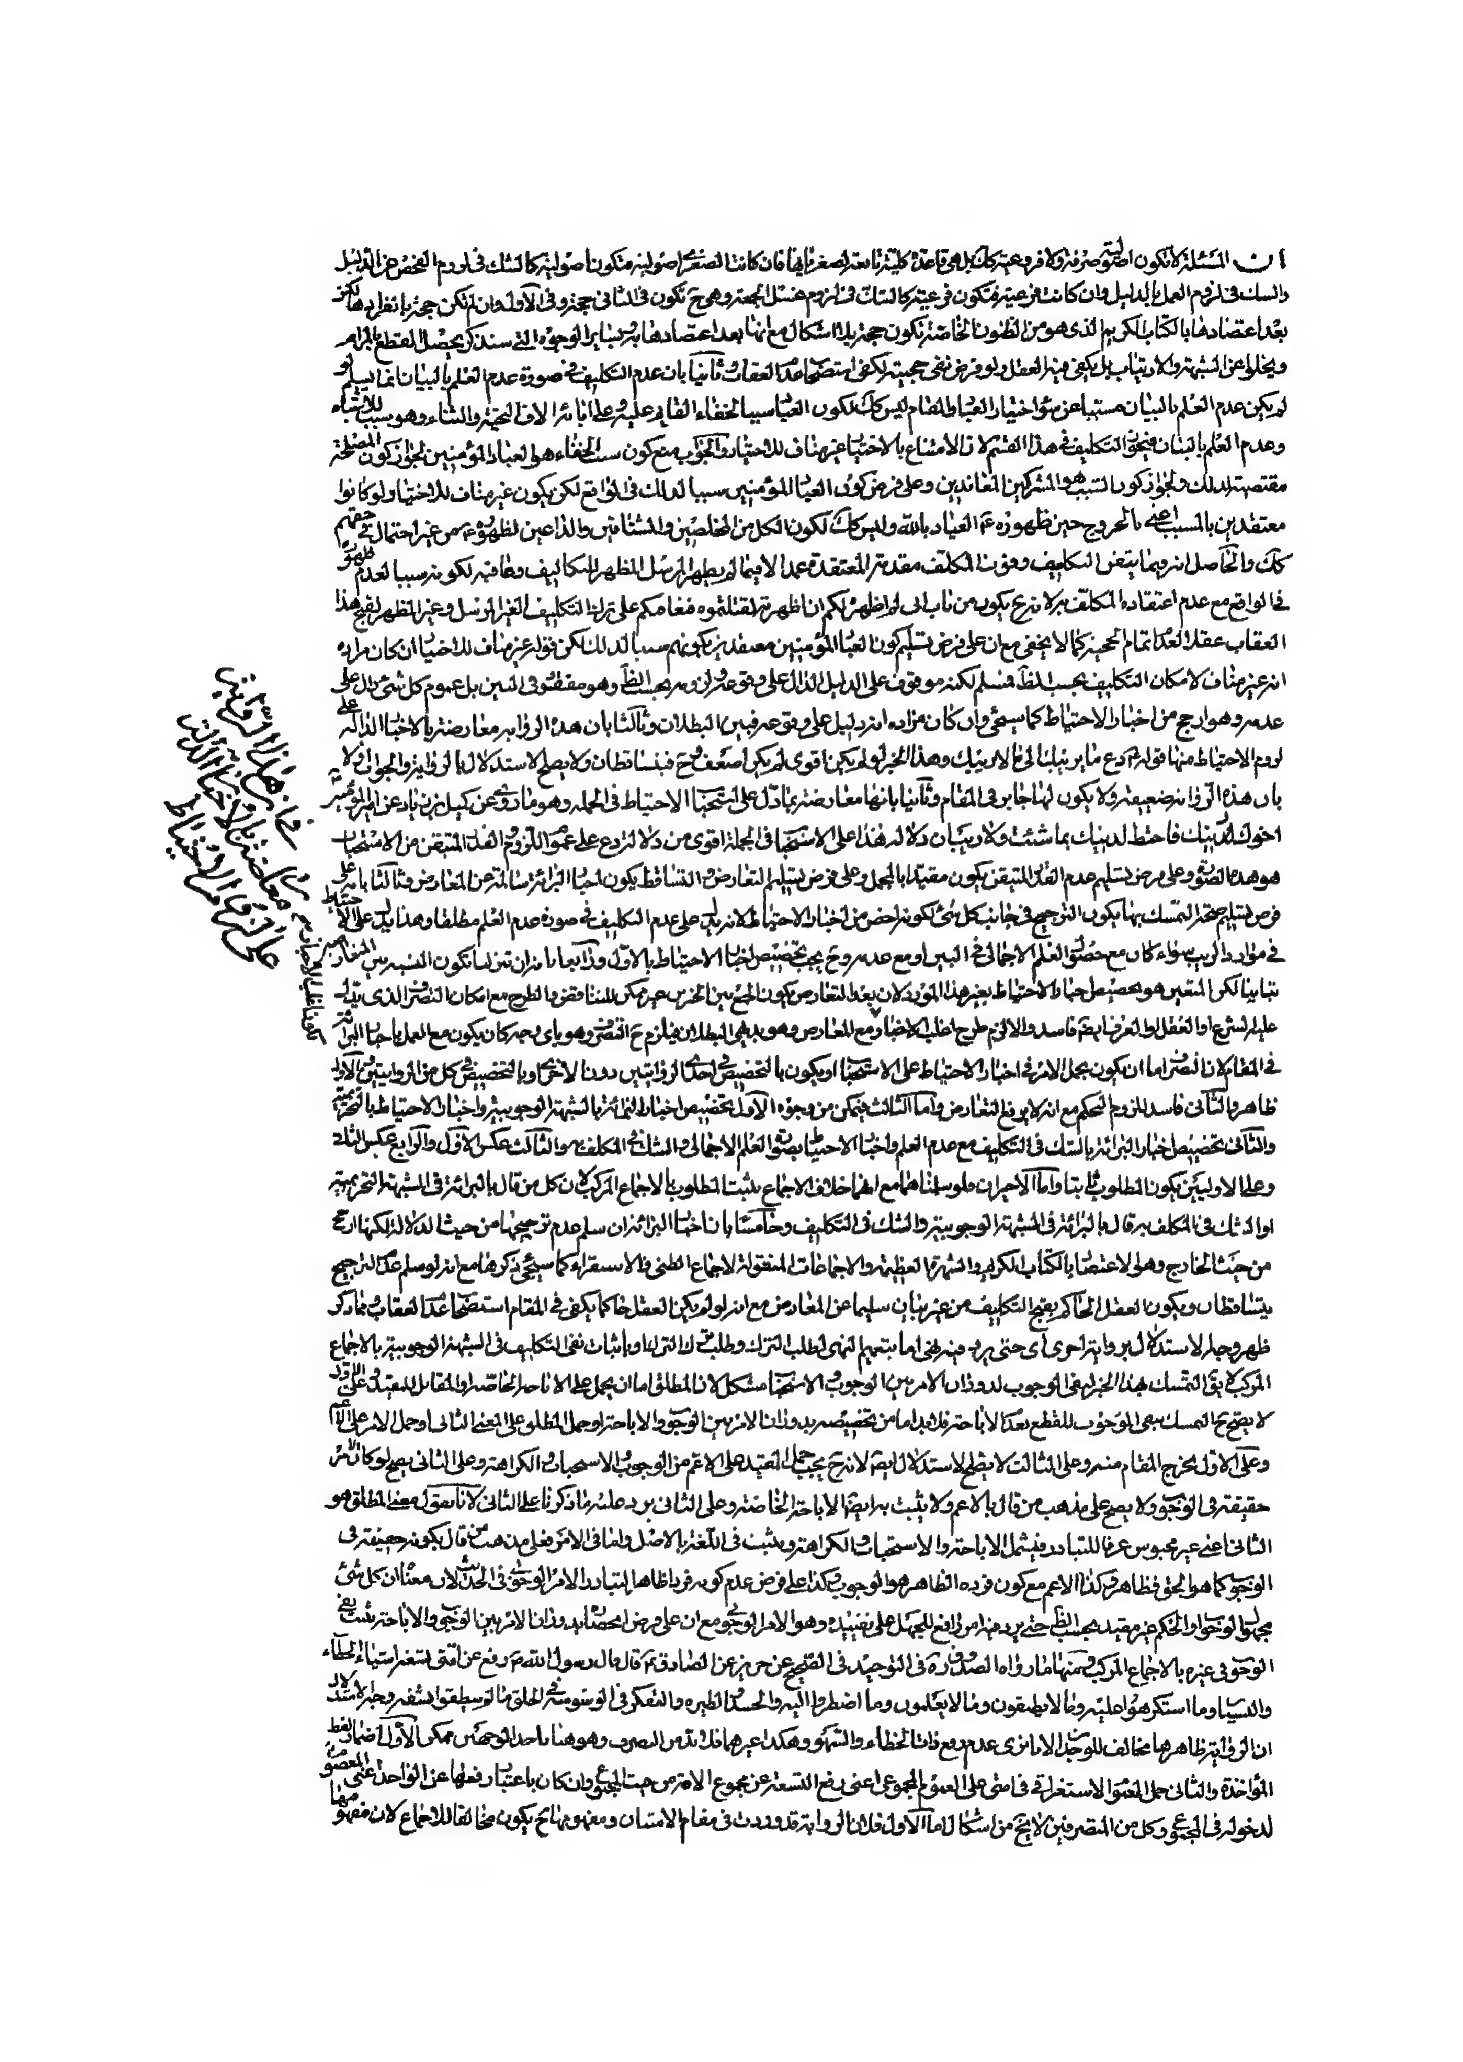 ان المسئلة لا تكون اصولية صرفة ولا فروعية كك بل هي قاعدة كلية تابعة لصغرياتها فان كانت الصغرى اصولية فتكون اصولية كالشك في لزوم الفحص عن الدليل
والشك في لزوم العمل بالدليل وان كانت فرعية فتكون فرعية كالشك في لزوم غسل الجمعة وهي ح تكون في الثاني حجة وفي الاول وان لم تكن حجة بانفرادها لكن
بعد اعتضادها بالكتاب الكريم الذي هو من الظنون الخاصة تكون حجة بلا اشكال مع انها بعد اعتضادها بسائر الوجوه التي سنذكر يحصل القطع بالمرام
ويخلو عن الشبهة والارتياب بل يكفي فيه العقل ولو فرض نفي حجيته لكفى استصحاب عدم العقاب وثانيا بان عدم التكليف في صورة عدم العلم بالبيان انما يسلم لو
لم يكن عدم العلم بالبيان مسببا عن سوء اختيار العباد والمقام ليس كك لكون العباد سببا لخفاء القايم عليه وعلى ابائه الاف التحية والثناء وهو سبب للاشتباه
وعدم العلم بالبيان فيجوز التكليف في هذا القسم لان الامتناع بالاختيار غير مناف للاختيار والجواب منع كون سبب الخفاء هو العباد المؤمنين لجواز كون المصلحة
مقتضية لذلك ولجواز كون السبب هو المشركين المعاندين وعلى فرض كون العباد المؤمنين سببا لذلك في الواقع لكن يكون غير مناف للاختيار لو كانوا
معتقدين بالسبب اعني بالخروج حين ظهوره ع العياذ بالله وليس كك لكون الكل من المخلصين والمشتاقين والداعين لظهوره ع من غير احتمال في حقهم
كك والحاصل انه فيما يتعين التكليف وفوت المكلف مقدمته المعتقدة عمدا لا فيما لم يظهر الرسل المظهر للتكاليف ومعاقبه لكونه سببا لعدم ظهوره
في الواقع مع عدم اعتقاده المكلف به لانه ح يكون من باب اني لم اظهر لكم ان اظهرته لقتلتموه فعاقبكم على ترك التكليف الغير المرسل وغير المظهر لقبح هذا
العقاب عقلا لعدم اتمام الحجة كما لا يخفى مع ان على فرض تسليم كون العباد المؤمنين معتقدين بكونهم سببا لذلك لكن قوله غير مناف للاختيار ان كان مراده
انه غير مناف لامكان التكليف بحسب الظ فمسلم لكنه موقوف على الدليل الدال على وقوعه ولزومه بحسب الظ وهو مفقود في البين بل عموم كل شئ دال على
عدمه وهو ارجح من اخبار الاحتياط كما سيجئ وان كان مراده انه دليل على وقوعه فبين البطلان وثالثا بان هذه الرواية معارضة بالاخبار الدالة على
لزوم الاحتياط منها قوله ع دع ما يريبك الى ما لا يريبك وهذا الخبر لو لم يكن اقوى لم يكن اضعف وح فيتساقطان ولا يصلح الاستدلال بالرواية والجواب اولا
بان هذه الرواية ضعيفة ولا يكون لها جابر في المقام وثانيا بانها معارضة بما دل على استحباب الاحتياط في الجملة وهو ما روى عن كميل بن زياد عن امير المؤمنين
اخوك دينك فاحتط لدينك بما شئت ولا ريب ان دلالة هذا على الاستحباب في الجملة اقوى من دلالة دع على عموم اللزوم والقدر المتيقن من الاستحباب
هو هذه الصورة وعلى فرض تسليم عدم القدر المتيقن يكون مقيدا بالمجمل وعلى فرض تسليم التعارض والتساقط يكون اخبار البرائة سالمة عن المعارض وثالثا بانه على
فرض تسليم صحة التمسك بها يكون الترجيح في جانب كل شئ لكونه اخص من اخبار الاحتياط لانه يدل على عدم التكليف في صورة عدم العلم مطلقا وهذا يدل على الاحتياط
في موارد الريب سواء كان مع حصول العلم الاجمالي في البين او مع عدمه وح يجب تخصيص اخبار الاحتياط بالاول ورابعا بانه ان تنزلنا تكون النسبة بين المتعارضين
تباينا لكن المتعين هو تخصيص اخبار الاحتياط بغير هذا المورد لان بعد التعارض يكون الجمع بين الخبرين غير ممكن للتناقض والطرح مع امكان التصرف الذي يدل
عليه الشرع او العقل او العرف ايضا فاسد والا لزم طرح اغلب الاخبار مع المعارض وهو بديهي البطلان فيلزم ح التصرف وهو باي وجه كان يكون مع العمل باخبار البرائة
في المقام لان التصرف اما ان يكون بحمل الامر في اخبار الاحتياط على الاستحباب او يكون بالتخصيص في احدى الروايتين دون الاخرى او بالتخصيص في كل من الروايتين والاول
ظاهر والثاني فاسد للزوم التحكم مع انه لا يرفع التعارض واما الثالث فيمكن من وجوه الاول تخصيص اخبار البرائة بالشبهة الوجوبية واخبار الاحتياط بالتحريمية
والثاني تخصيص اخبار البرائة بالشك في التكليف مع عدم العلم واخبار الاحتياط بصورة العلم الاجمالي والشك في المكلف به والثالث عكس الاول والرابع عكس الثاني
وعلى الاوليين يكون المطلوب ثابتا واما الاخيران فلو سلمناهما مع انهما خلاف الاجماع يثبت المطلوب بالاجماع المركب لان كل من قال بالبرائة في الشبهة التحريمية
او الشك في المكلف به قال بالبرائة في الشبهة الوجوبية والشك في التكليف وخامسا بان اخبار البرائة ان سلم عدم ترجيحها من حيث الدلالة لكنها ارجح
من حيث الخارج وهو الاعتضاد بالكتاب الكريم والشهرة العظيمة والاجماعات المنقولة والاجماع الظني والاستقراء كما سيجئ ذكرها مع انه لو سلم عدم الترجيح
يتساقطان ويكون العقل الحاكم بقبح التكليف من غير بيان سليما عن المعارض مع انه لو لم يكن العقل حاكما يكفي في المقام استصحاب عدم العقاب ومما ذكر
ظهر وجه الاستدلال برواية اخرى اي حتى يرد فيه نهى اما بتعميم النهي لطلب الترك وطلب ترك الترك او باثبات نفي التكليف في الشبهة الوجوبية بالاجماع
المركب لا يق التمسك بهذا الخبر لنفي الوجوب لدوران الامر بين الوجوب والاستحباب مشكل لان المطلق اما ان يحمل على الاباحة الخاصة او المقابل للمقيد وعلى الاول
لا يصح ح التمسك بنفي الوجوب للقطع بعدم الاباحة فلا بد اما من تخصيصه بدوران الامر بين الوجوب والاباحة او حمل المطلق على المعنى الثاني او حمل الامر على الاعم
وعلى الاول يخرج المقام منه وعلى الثالث لا يصلح الاستدلال ايضا لانه ح يجب حمل المقيد على الاعم من الوجوب والاستحباب والكراهة وعلى الثاني يصح لو كان الامر
حقيقة في الوجوب ولا يصح على مذهب من قال بالاعم ولا يثبت به ايضا الاباحة الخاصة وعلى الثاني يرد عليه ما ذكرنا على الثاني لانا نقول معنى المطلق هو
الثاني اعني غير محبوس عرفا للتبادر فيشمل الاباحة والاستحباب والكراهة ويثبت في اللغة بالاصل واما في الامر فعلى مذهب من قال بكونه حقيقة في
الوجوب كما هو الحق فظاهر وكذا الاعم مع كون فرده الظاهر هو الوجوب وكذا على فرض عدم كونه فردا ظاهرا لتبادر الامر الوجوبي في الحديث لان معناه ان كل شئ
مجهول الوجوب او الحكم غير مقيد بحسب الظ حتى يرد فيه امر رافع للجهل على تقييده وهو الامر الوجوبي مع ان على فرض اختصاصه بدوران الامر بين الوجوب والاباحة يثبت نفي
الوجوب في غيره بالاجماع المركب ومنها ما رواه الصدوق ره في التوحيد في الصحيح عن حريز عن الصادق ع قال قال رسول الله ص رفع عن امتي تسعة اشياء الخطاء
والنسيان وما استكرهوا عليه وما لا يطيقون وما لا يعلمون وما اضطروا اليه والحسد والطيره والتفكر في الوسوسة في الخلق ما لم ينطقوا بشفة وجه الاستدلال
ان الرواية ظاهرها مخالف للوجدان لانا نرى عدم رفع ذات الخطاء والسهو وهكذا غيرهما فلا بد من التصرف وهو هنا باحد الوجهين ممكن الاول اضمار لفظ
المؤاخذة والثاني حمل العموم الاستغراقي في امتي على العموم المجموعي اعني رفع التسعة عن مجموع الامة من حيث المجموع وان كان باعتبار رفعها عن الواحد اعني المعصوم
لدخوله في المجموع وكل من التصرفين لا يخ من اشكال اما الاول فلان الرواية قد وردت في مقام الامتنان ومفهومها ح يكون مخالفا للاجماع لان مفهومها